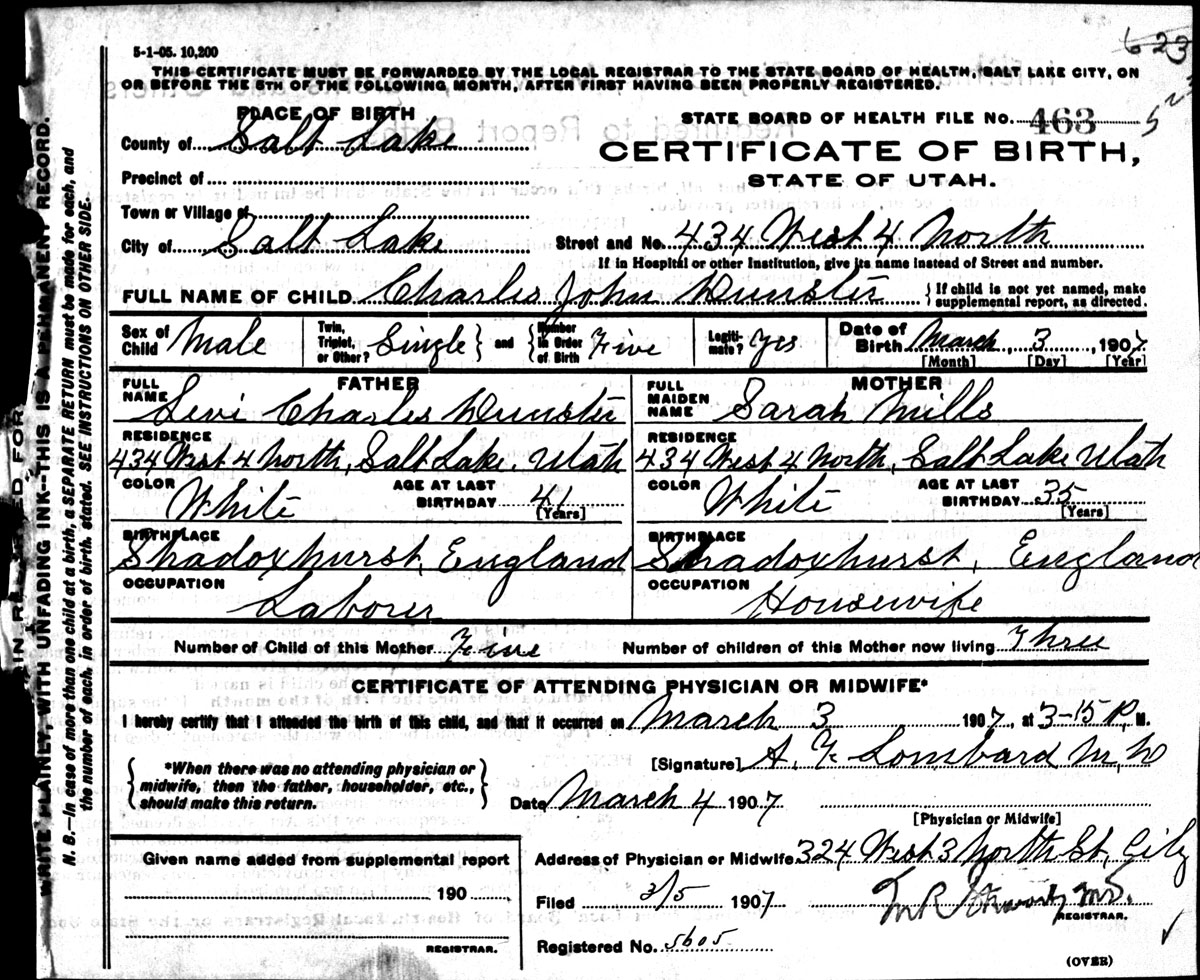 623
5-1-05. 10,200
THIS CERTIFICATE MUST BE FORWARDED BY THE LOCAL REGISTRAR TO THE STATE BOARD OF HEALTH, SALT LAKE CITY, ON
OR BEFORE THE 5TH OF THE FOLLOWING MONTH, AFTER FIRST HAVING BEEN PROPERLY REGISTERED.
PLACE OF BIRTH
STATE BOARD OF HEALTH FILE No. 463
County of Salt Lake
CERTIFICATE OF BIRTH,
STATE OF UTAH.
Precinct of
Town or Village of
City of Salt Lake
Street and No. 434 West 4 North
If in Hospital or other Institution, give its name instead of Street and number.
FULL NAME OF CHILD Charles John Dunster { If child is not yet named, make supplemental report, as directed.
Sex of Child Male
Twin, Triplet, or Other? Single } and { Number in Order of Birth Five
Legiti-mate? Yes
Date of Birth March 3, 1907
[Month] [Day] [Year]
FATHER
FULL NAME Levi Charles Dunster
RESIDENCE
434 West 4 North, Salt Lake. Utah
COLOR White
AGE AT LAST BIRTHDAY 41
[Years]
BIRTHPLACE
Shadoxhurst, England
OCCUPATION
Laborer
MOTHER
FULL MAIDEN NAME Sarah Mills
RESIDENCE
434 West 4 North, Salt Lake Utah
COLOR White
AGE AT LAST BIRTHDAY 35
[Years]
BIRTHPLACE
Shadoxhurst, England
OCCUPATION
Housewife
Number of Child of this Mother Five
Number of children of this Mother now living Three
CERTIFICATE OF ATTENDING PHYSICIAN OR MIDWIFE*
I hereby certify that I attended the birth of this child, and that it occurred on March 3 1907, at 3-15 P. M.
{ *When there was no attending physician or
midwife, then the father, householder, etc.,
should make this return. }
[Signature] A. F. Lombard M.D
Date March 4 1907
[Physician or Midwife]
Given name added from supplemental report
190
REGISTRAR.
Address of Physician or Midwife 324 West 3 North St, City
Filed 3/5 1907
M.D.
REGISTRAR.
Registered No. 5605
(OVER)
WRITE PLAINLY, WITH UNFADING INK—THIS IS A PERMANENT RECORD.
N. B.—In case of more than one child at a birth, a SEPARATE RETURN must be made for each, and
the number of each, in order of birth, stated. SEE INSTRUCTIONS ON OTHER SIDE.